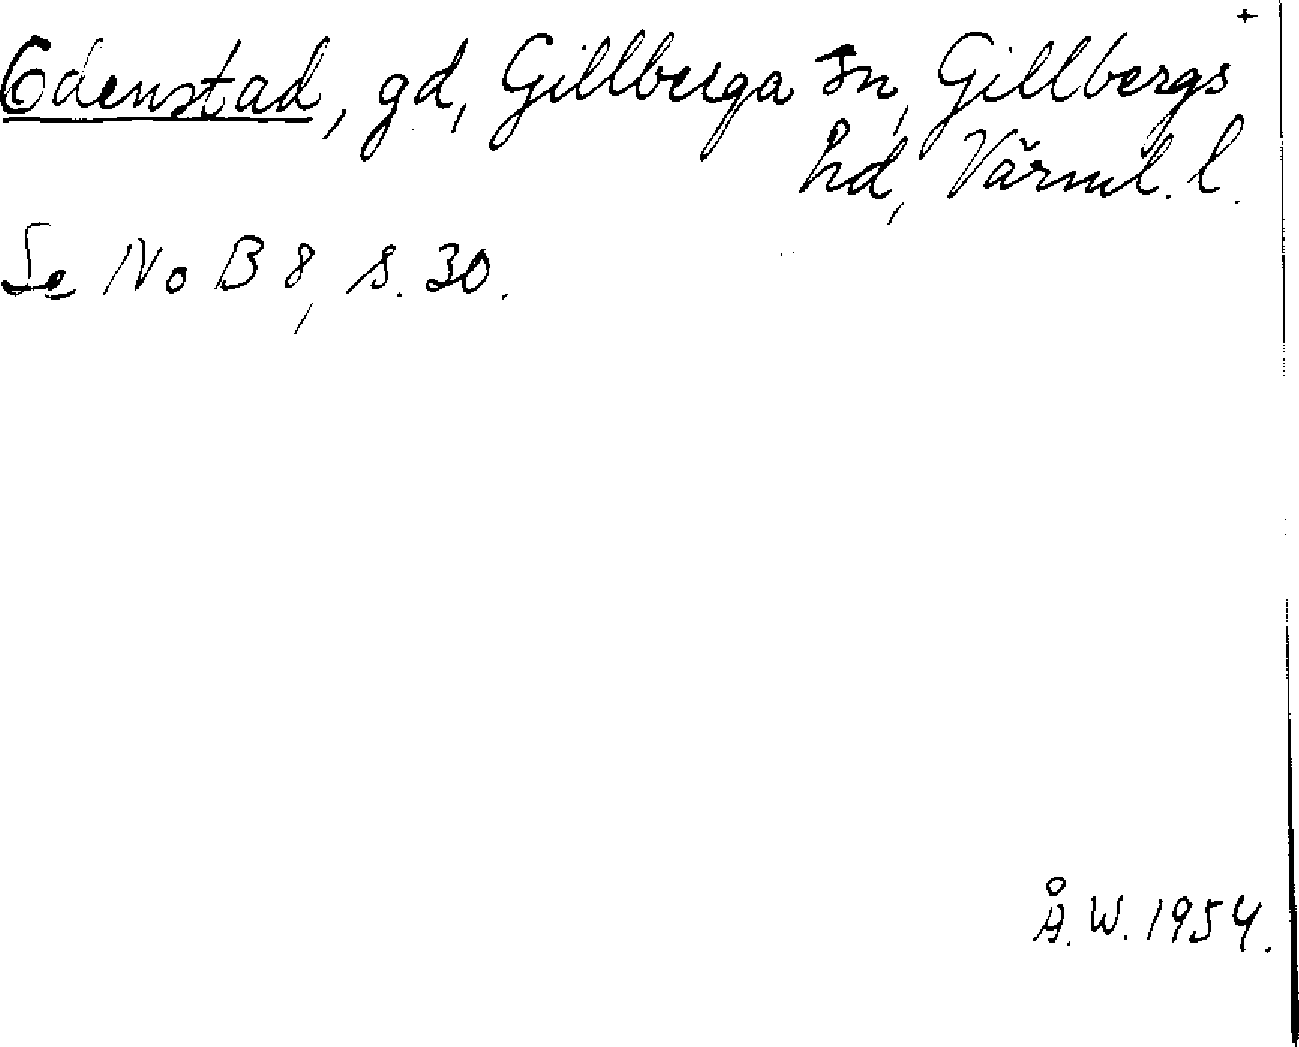 +
Edenstad, gd, Gillberga sn, Gillbergs
hd, Värml. l.
Se NoB 8, s. 30.
Å. W. 1954.